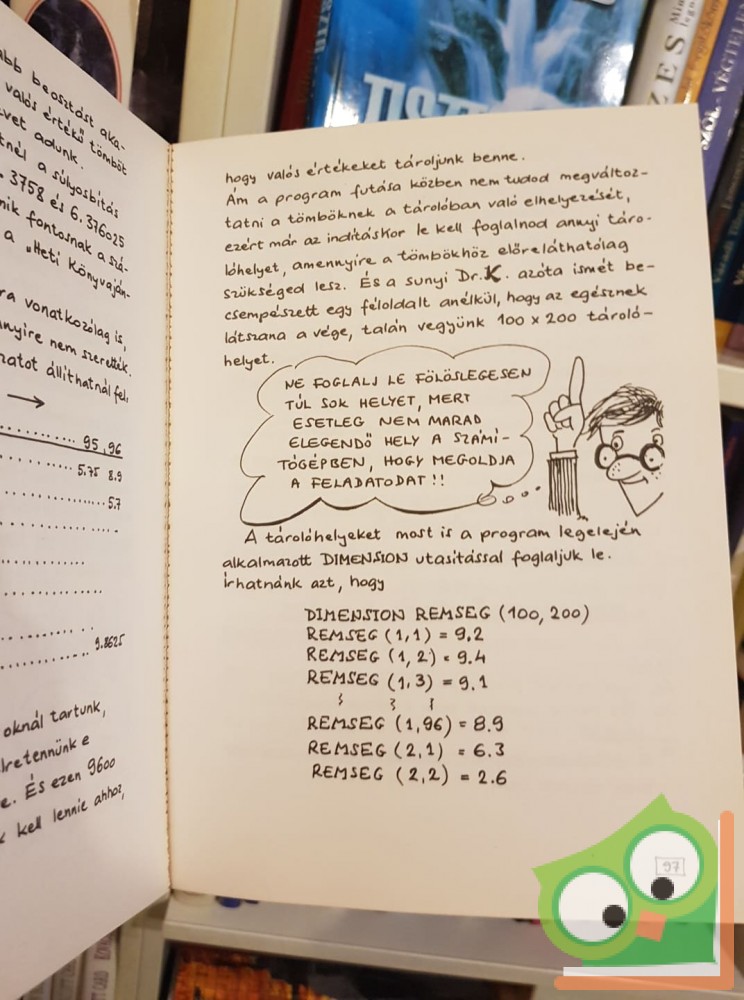 abb beosztást aka-
valós értékű tömböt
vet adunk.
tnél a súlyosbítás
. 3758 és 6.376025
nik fontosnak a szá-
a „Heti Könyvaján-
ra vonatkozólag is,
nnyire nem szerették.
zatot állíthatnál fel,
→
95 , 96
5.75 8.9
5.7
9.8625
oknál tartunk,
lretennünk e
e. És ezen 9600
k kell lennie ahhoz,
hogy valós értékeket tároljunk benne.
Ám a program futása közben nem tudod megváltoz-
tatni a tömböknek a tárolóban való elhelyezését,
ezért már az indításkor le kell foglalnod annyi táro-
lóhelyet, amennyire a tömbökhöz előreláthatólag
szükséged lesz. És a sunyi Dr.K. azóta ismét be-
csempészett egy féloldalt anélkül, hogy az egésznek
látszana a vége, talán vegyünk 100 x 200 tároló-
helyet.
NE FOGLALJ LE FÖLÖSLEGESEN
TÚL SOK HELYET, MERT
ESETLEG NEM MARAD
ELEGENDŐ HELY A SZÁMÍ-
TÓGÉPBEN, HOGY MEGOLDJA
A FELADATODAT !!
A tárolóhelyeket most is a program legelején
alkalmazott DIMENSION utasítással foglaljuk le.
Írhatnánk azt, hogy
DIMENSION REMSEG (100, 200)
REMSEG (1,1) = 9.2
REMSEG (1, 2) = 9.4
REMSEG (1,3) = 9.1
REMSEG (1,96) = 8.9
REMSEG (2,1) = 6.3
REMSEG (2,2) = 2.6
97